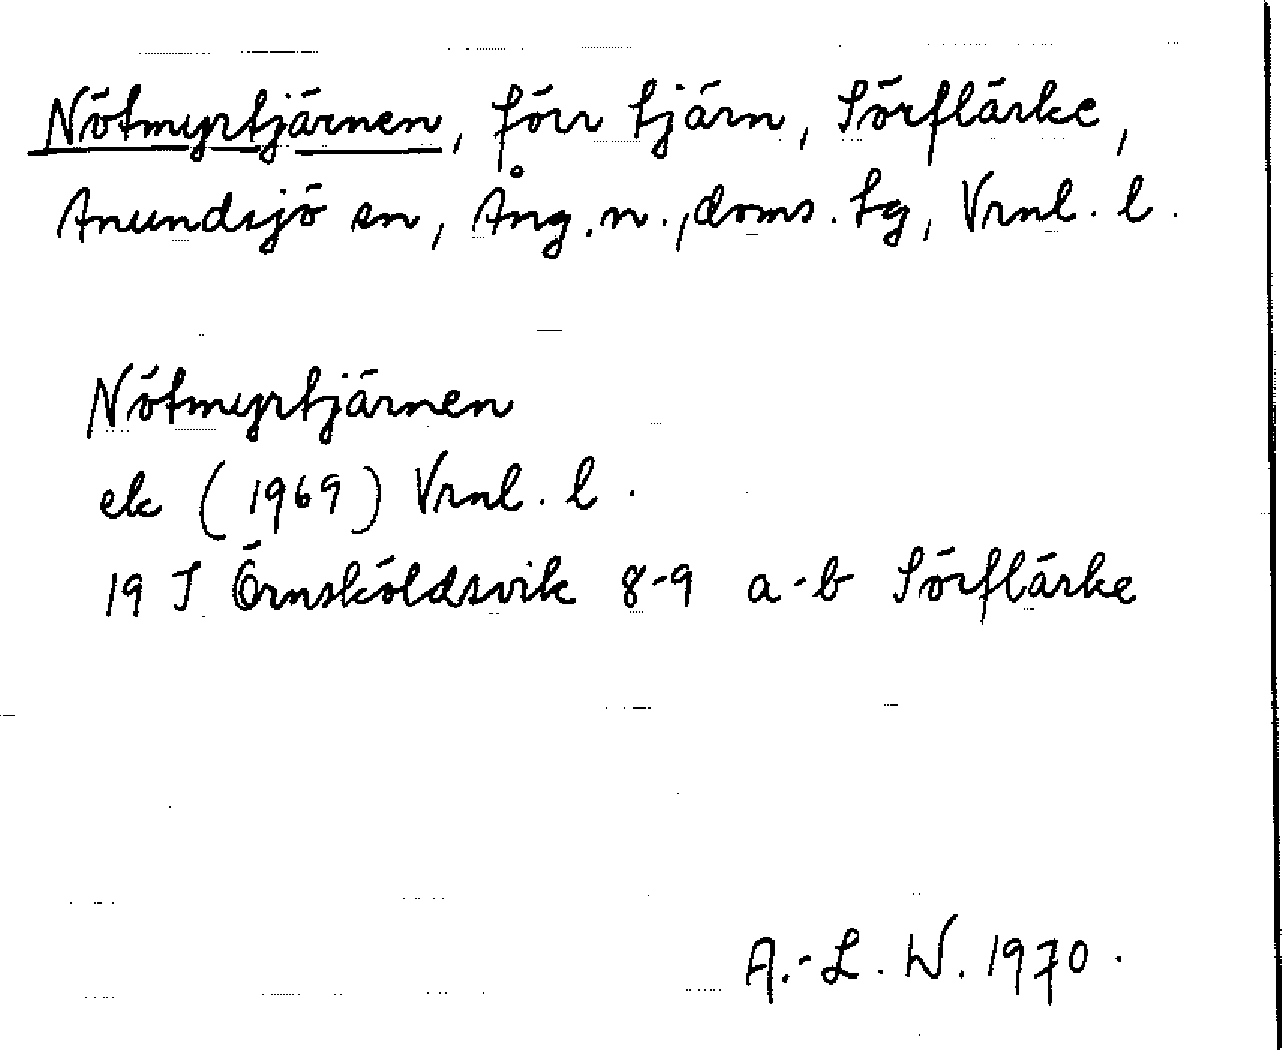 Nötmyrtjärnen, förr tjärn, Sörflärke,
Anundsjö sn, Ång. n., doms. tg, Vrnl. l.
Nötmyrtjärnen
ek (1969) Vrnl. l.
19 I Örnsköldsvik 8-9 a-b Sörflärke
A.-L. W. 1970.